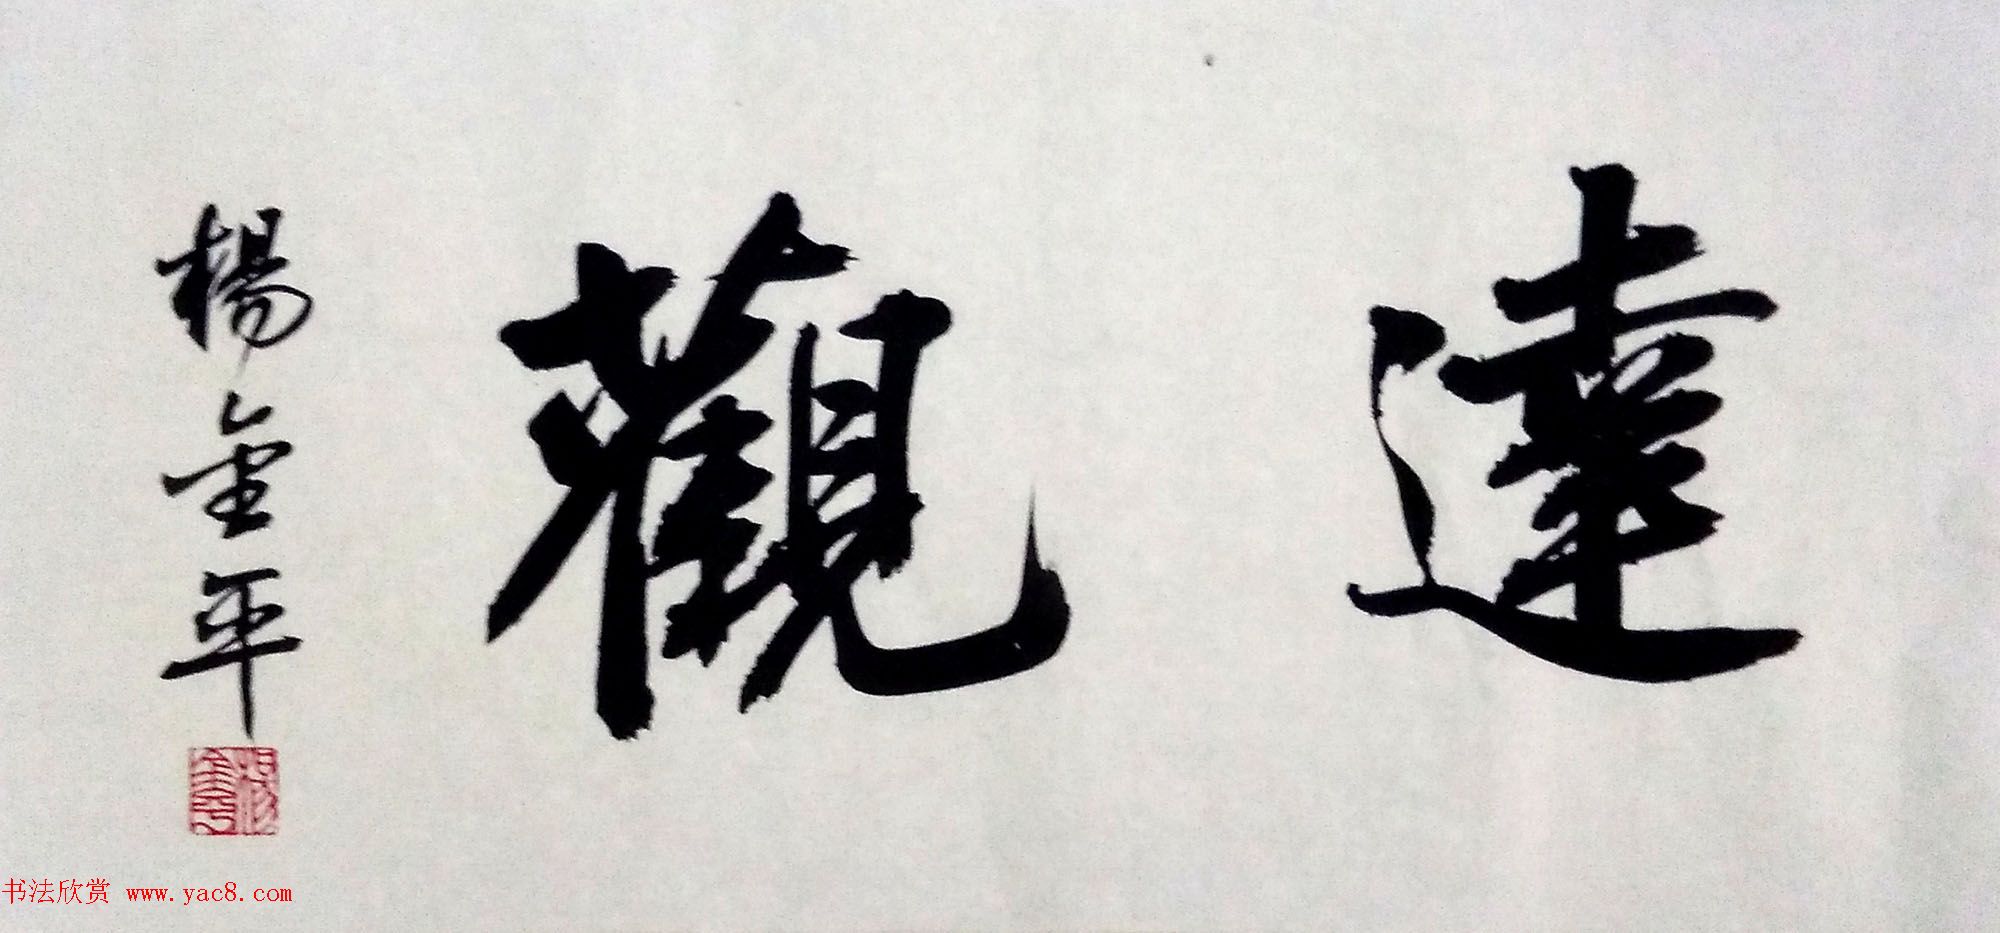 達觀
楊金平
书法欣赏 www.yac8.com